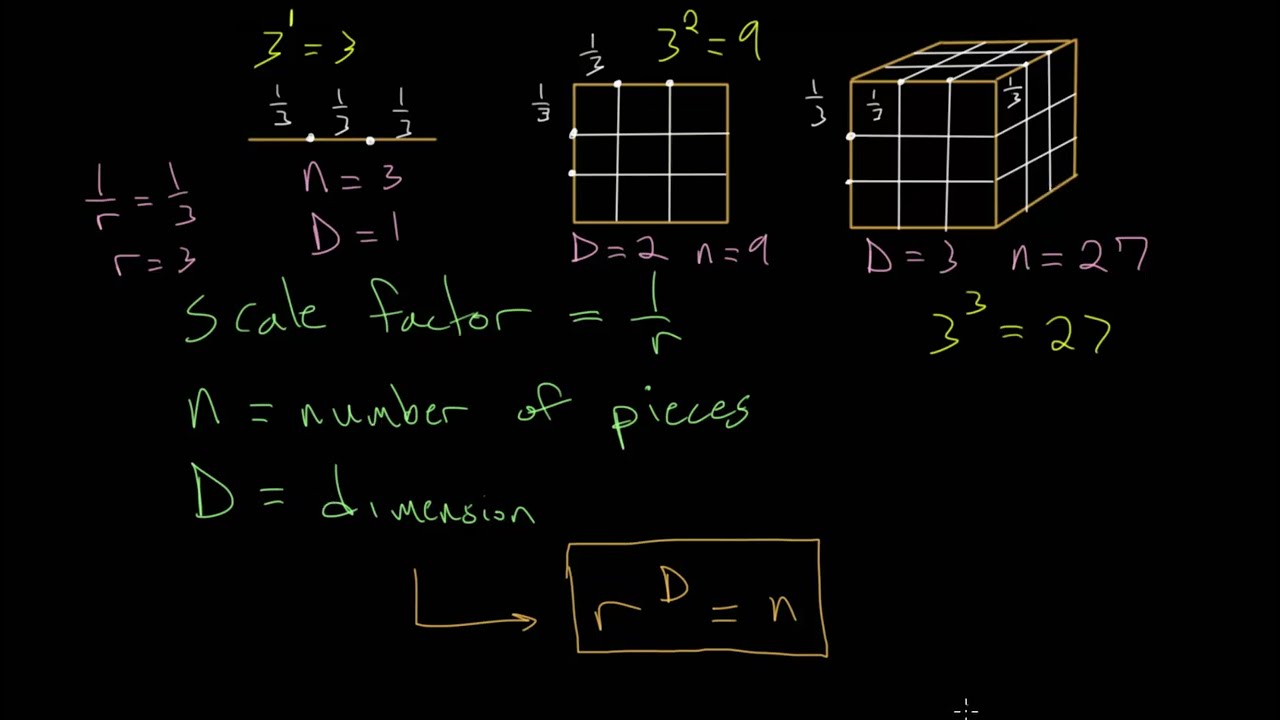 3^1 = 3
1/3 1/3 1/3
1/r = 1/3
r = 3
n = 3
D = 1
3^2 = 9
1/3
1/3
D = 2 n = 9
1/3 1/3 1/3
D = 3 n = 27
3^3 = 27
Scale factor = 1/r
n = number of pieces
D = dimension
r^D = n